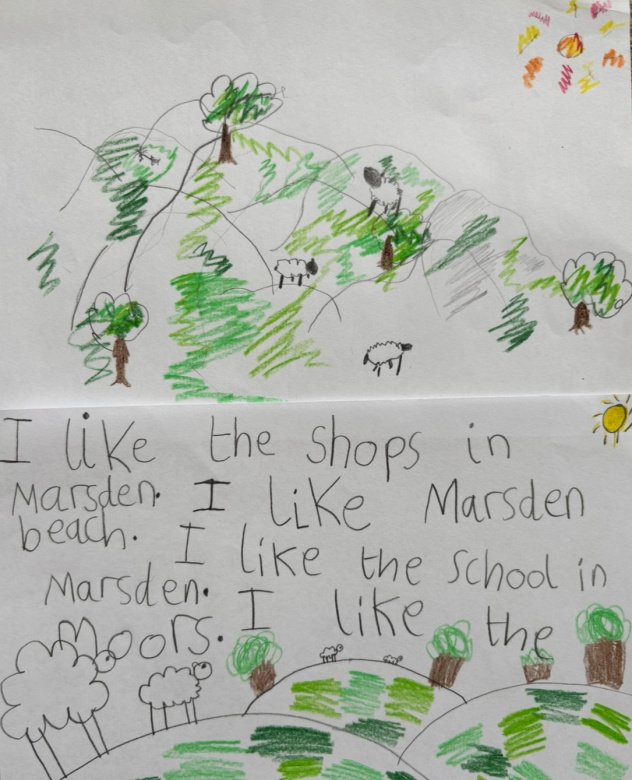 I like the shops in
Marsden. I like Marsden
beach. I like the school in
Marsden. I like the
Moors.